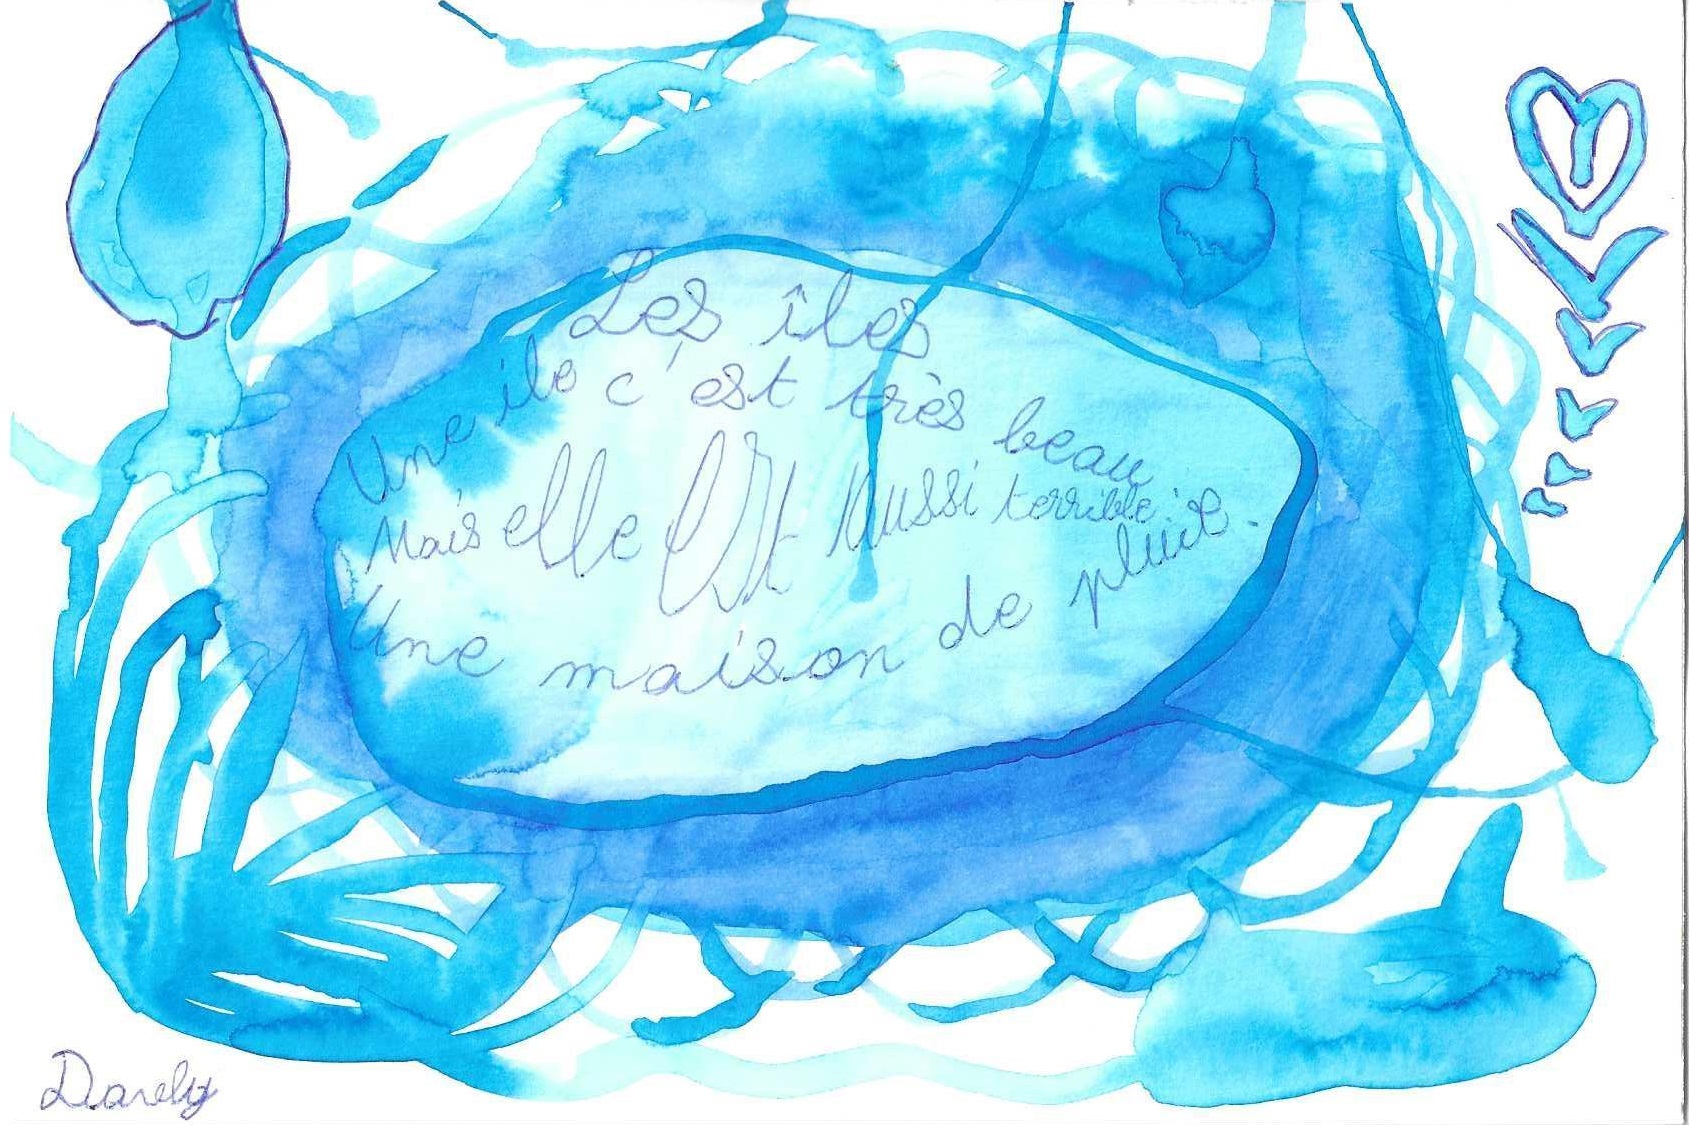 Les îles
Une île c'est très beau
Mais elle Est Aussi terrible
Une maison de pluie.
Darely